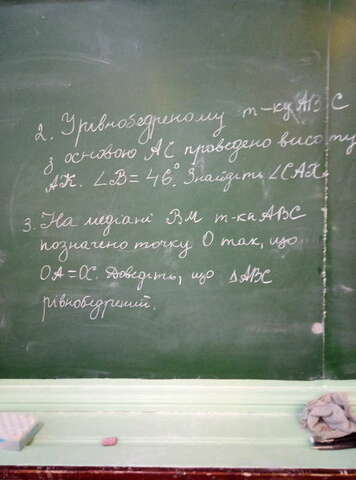 2. У рівнобедреному т-ку АВС
з основою АС проведено висоту
АК. ∠В = 46°. Знайдіть ∠САК.
3. На медіані ВМ т-ка АВС
позначено точку О так, що
ОА = ОС. Доведіть, що △АВС
рівнобедрений.